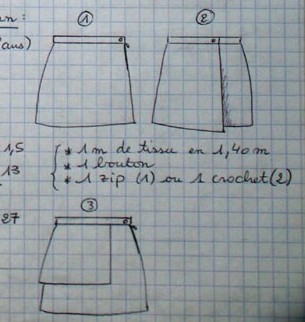 n :
① ②
ans)
1,5 * 1 m de tissu en 1,40 m
13 * 1 bouton
* 1 zip (1) ou 1 crochet (2)
27 ③